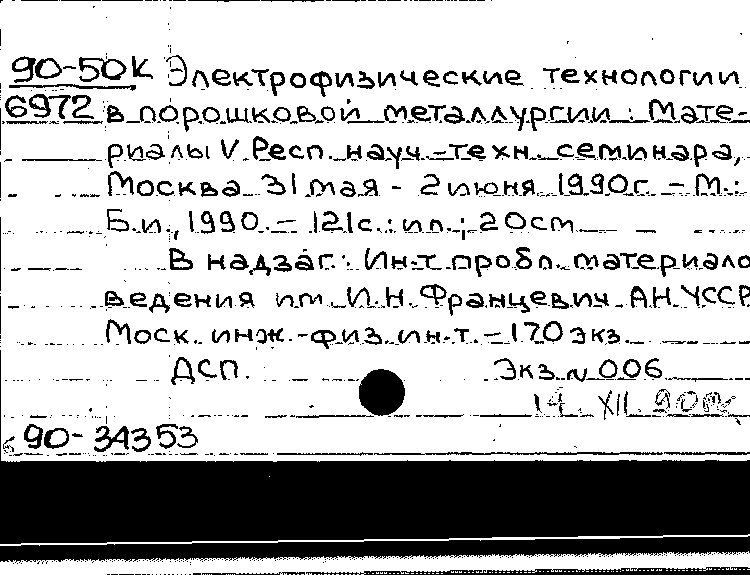 90-50К Электрофизические технологии
6972 в порошковой металлургии : Мате-
риалы V Респ. науч.-техн. семинара,
Москва 31 мая - 2 июня 1990г. - М.:
Б.и., 1990. - 121с.: ил.; 20см
В надзаг.: Ин-т пробл. материало
ведения им. И.Н. Францевич АН УССР
Моск. инж.-физ. ин-т. - 170 экз.
ДСП. Экз. N 006
14. XII. 90
90-34353